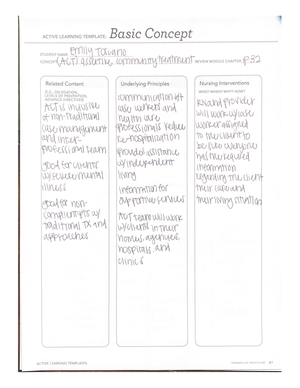 ACTIVE LEARNING TEMPLATE: Basic Concept
STUDENT NAME Emily
CONCEPT (ACT) assertive community treatment REVIEW MODULE CHAPTER p.32
Related Content
(E.G., DELEGATION,
LEVELS OF PREVENTION,
ADVANCE DIRECTIVES)
ACT is inclusive
of non-traditional
case management
and inter-
professional team
good for clients
w/ severe mental
illness
good for non-
compliant pts w/
traditional TX and
approaches
Underlying Principles
communication b/t
case workers and
health care
professionals reduce
re-hospitalization
provides assistance
w/ independent
living
information for
supportive services
ACT team will work
w/ clients in their
homes, agencies,
hospitals, and
clinics
Nursing Interventions
WHO? WHEN? WHY? HOW?
RN and provider
will work w/ case
worker assigned
to the client to
be sure everyone
has the required
information
regarding the client
their care and
their living situation
ACTIVE LEARNING TEMPLATES